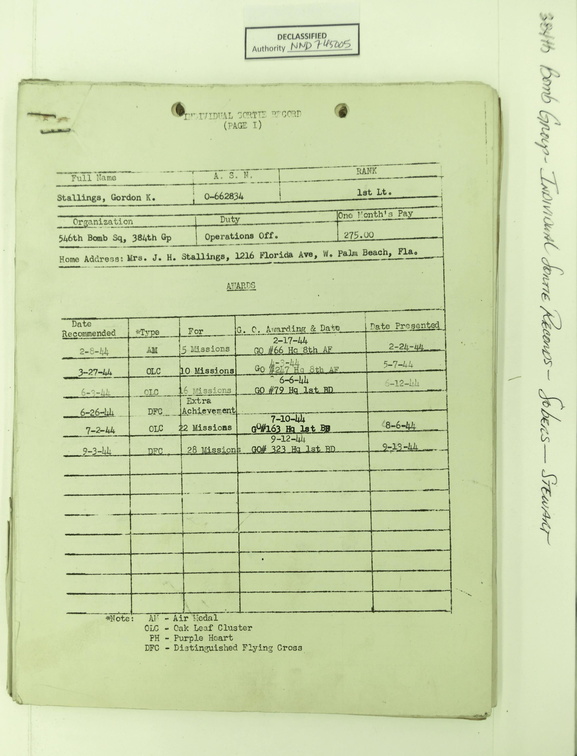 DECLASSIFIED
Authority NND 745005
384th Bomb Group - Individual Sortie Records - Sobers - Stewart
INDIVIDUAL SORTIE RECORD
(PAGE 1)
Full Name A. S. N. RANK
Stallings, Gordon K. O-662834 1st Lt.
Organization Duty One Month's Pay
546th Bomb Sq, 384th Gp Operations Off. 275.00
Home Address: Mrs. J. H. Stallings, 1216 Florida Ave, W. Palm Beach, Fla.
AWARDS
Date
Recommended *Type For G. O. Awarding & Date Date Presented
2-17-44
2-8-44 AM 5 Missions GO #66 Hq 8th AF 2-24-44
3-27-44 OLC 10 Missions GO #247 Hq 8th AF 5-7-44
6-6-44
OLC 16 Missions GO #79 Hq 1st BD 6-12-44
Extra
6-26-44 DFC Achievement
7-10-44
7-2-44 OLC 22 Missions GO#163 Hq 1st BD 8-6-44
9-12-44
9-3-44 DFC 28 Missions GO# 323 Hq 1st BD 9-13-44
*Note: AM - Air Medal
OLC - Oak Leaf Cluster
PH - Purple Heart
DFC - Distinguished Flying Cross